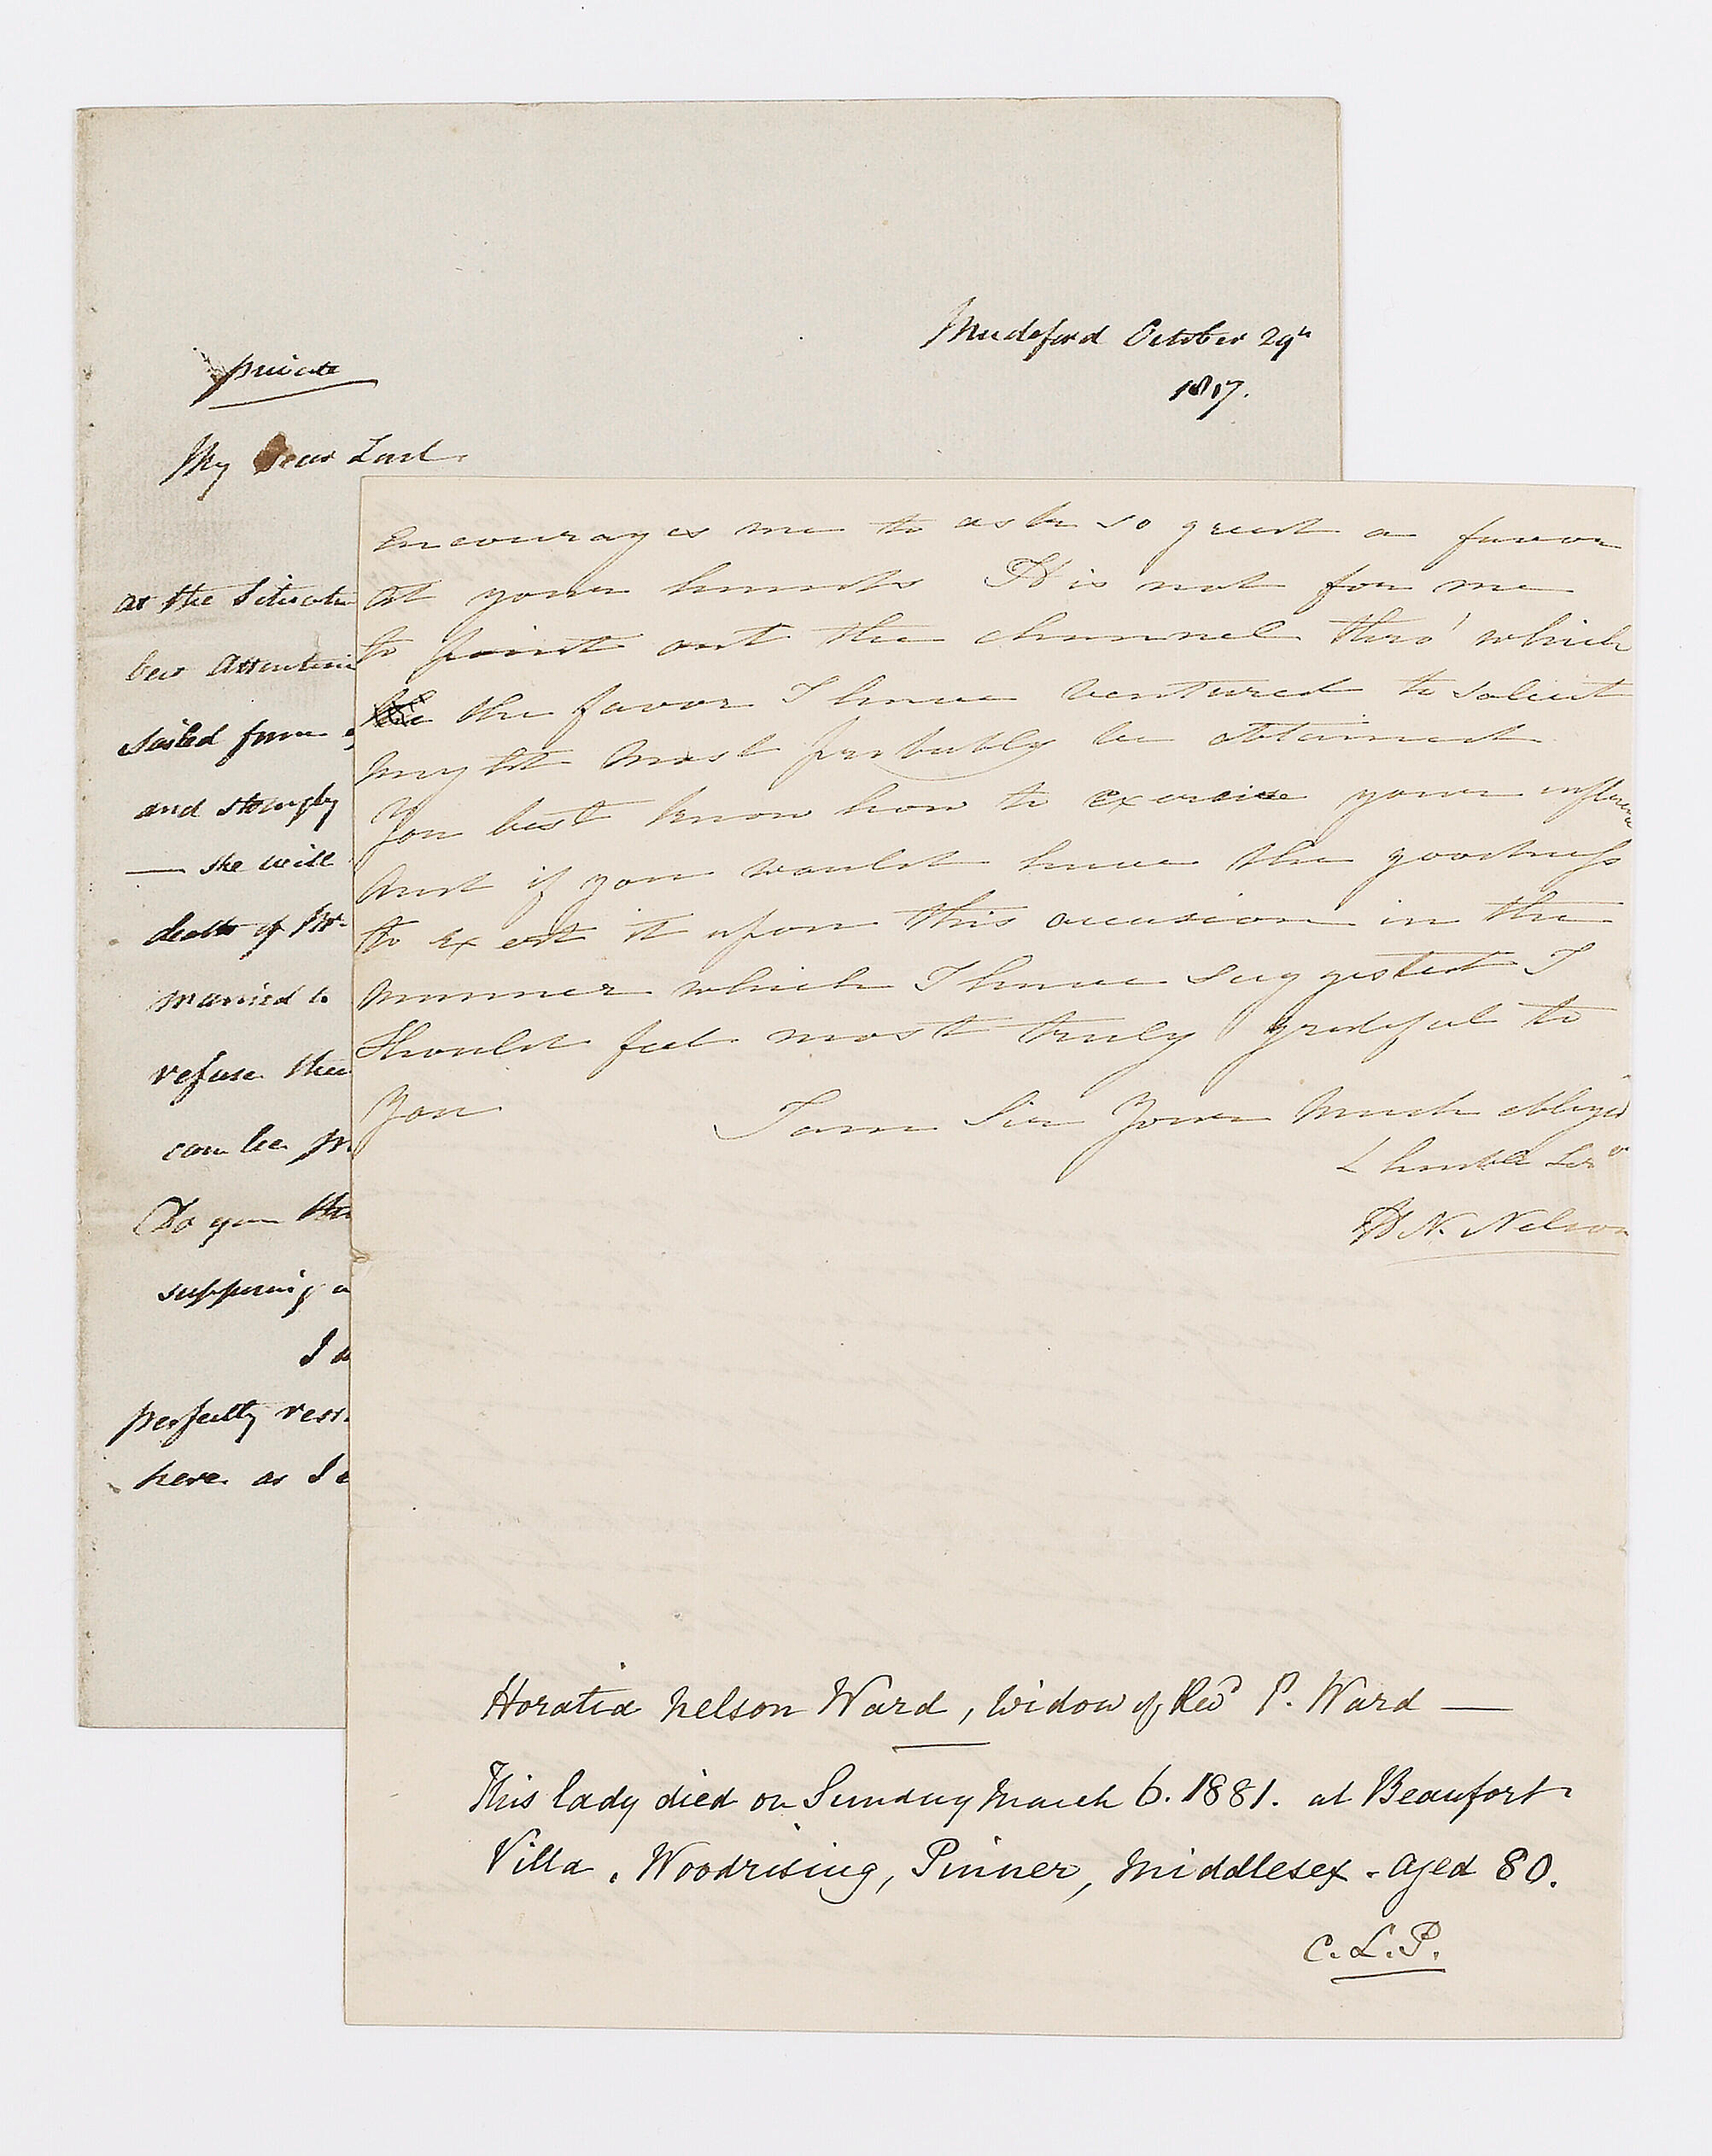 Mudeford October 29th
1817.
private
My Dear Lord
as the Situati
her Attenti
sailed from
and strongly
— she will
death of Mr.
married to
refuse the
can be
Do you thi
supposing
I
perfectly
here as I
encourages me to ask so great a favor
at your hands It is not for me
to point out the channel thro' which
the favor I have ventured to solicit
might most probably be obtained
You best know how to exercise your influence
And if you would have the goodness
to exert it upon this occasion in the
manner which I have suggested I
should feel most truly grateful to
You I am Sir Your Much obliged
& humble Sert
H N. Nelson
Horatia Nelson Ward, widow of Revd P. Ward —
This lady died on Sunday March 6. 1881. at Beaufort
Villa, Woodrising, Pinner, Middlesex - aged 80.
C.L.P.